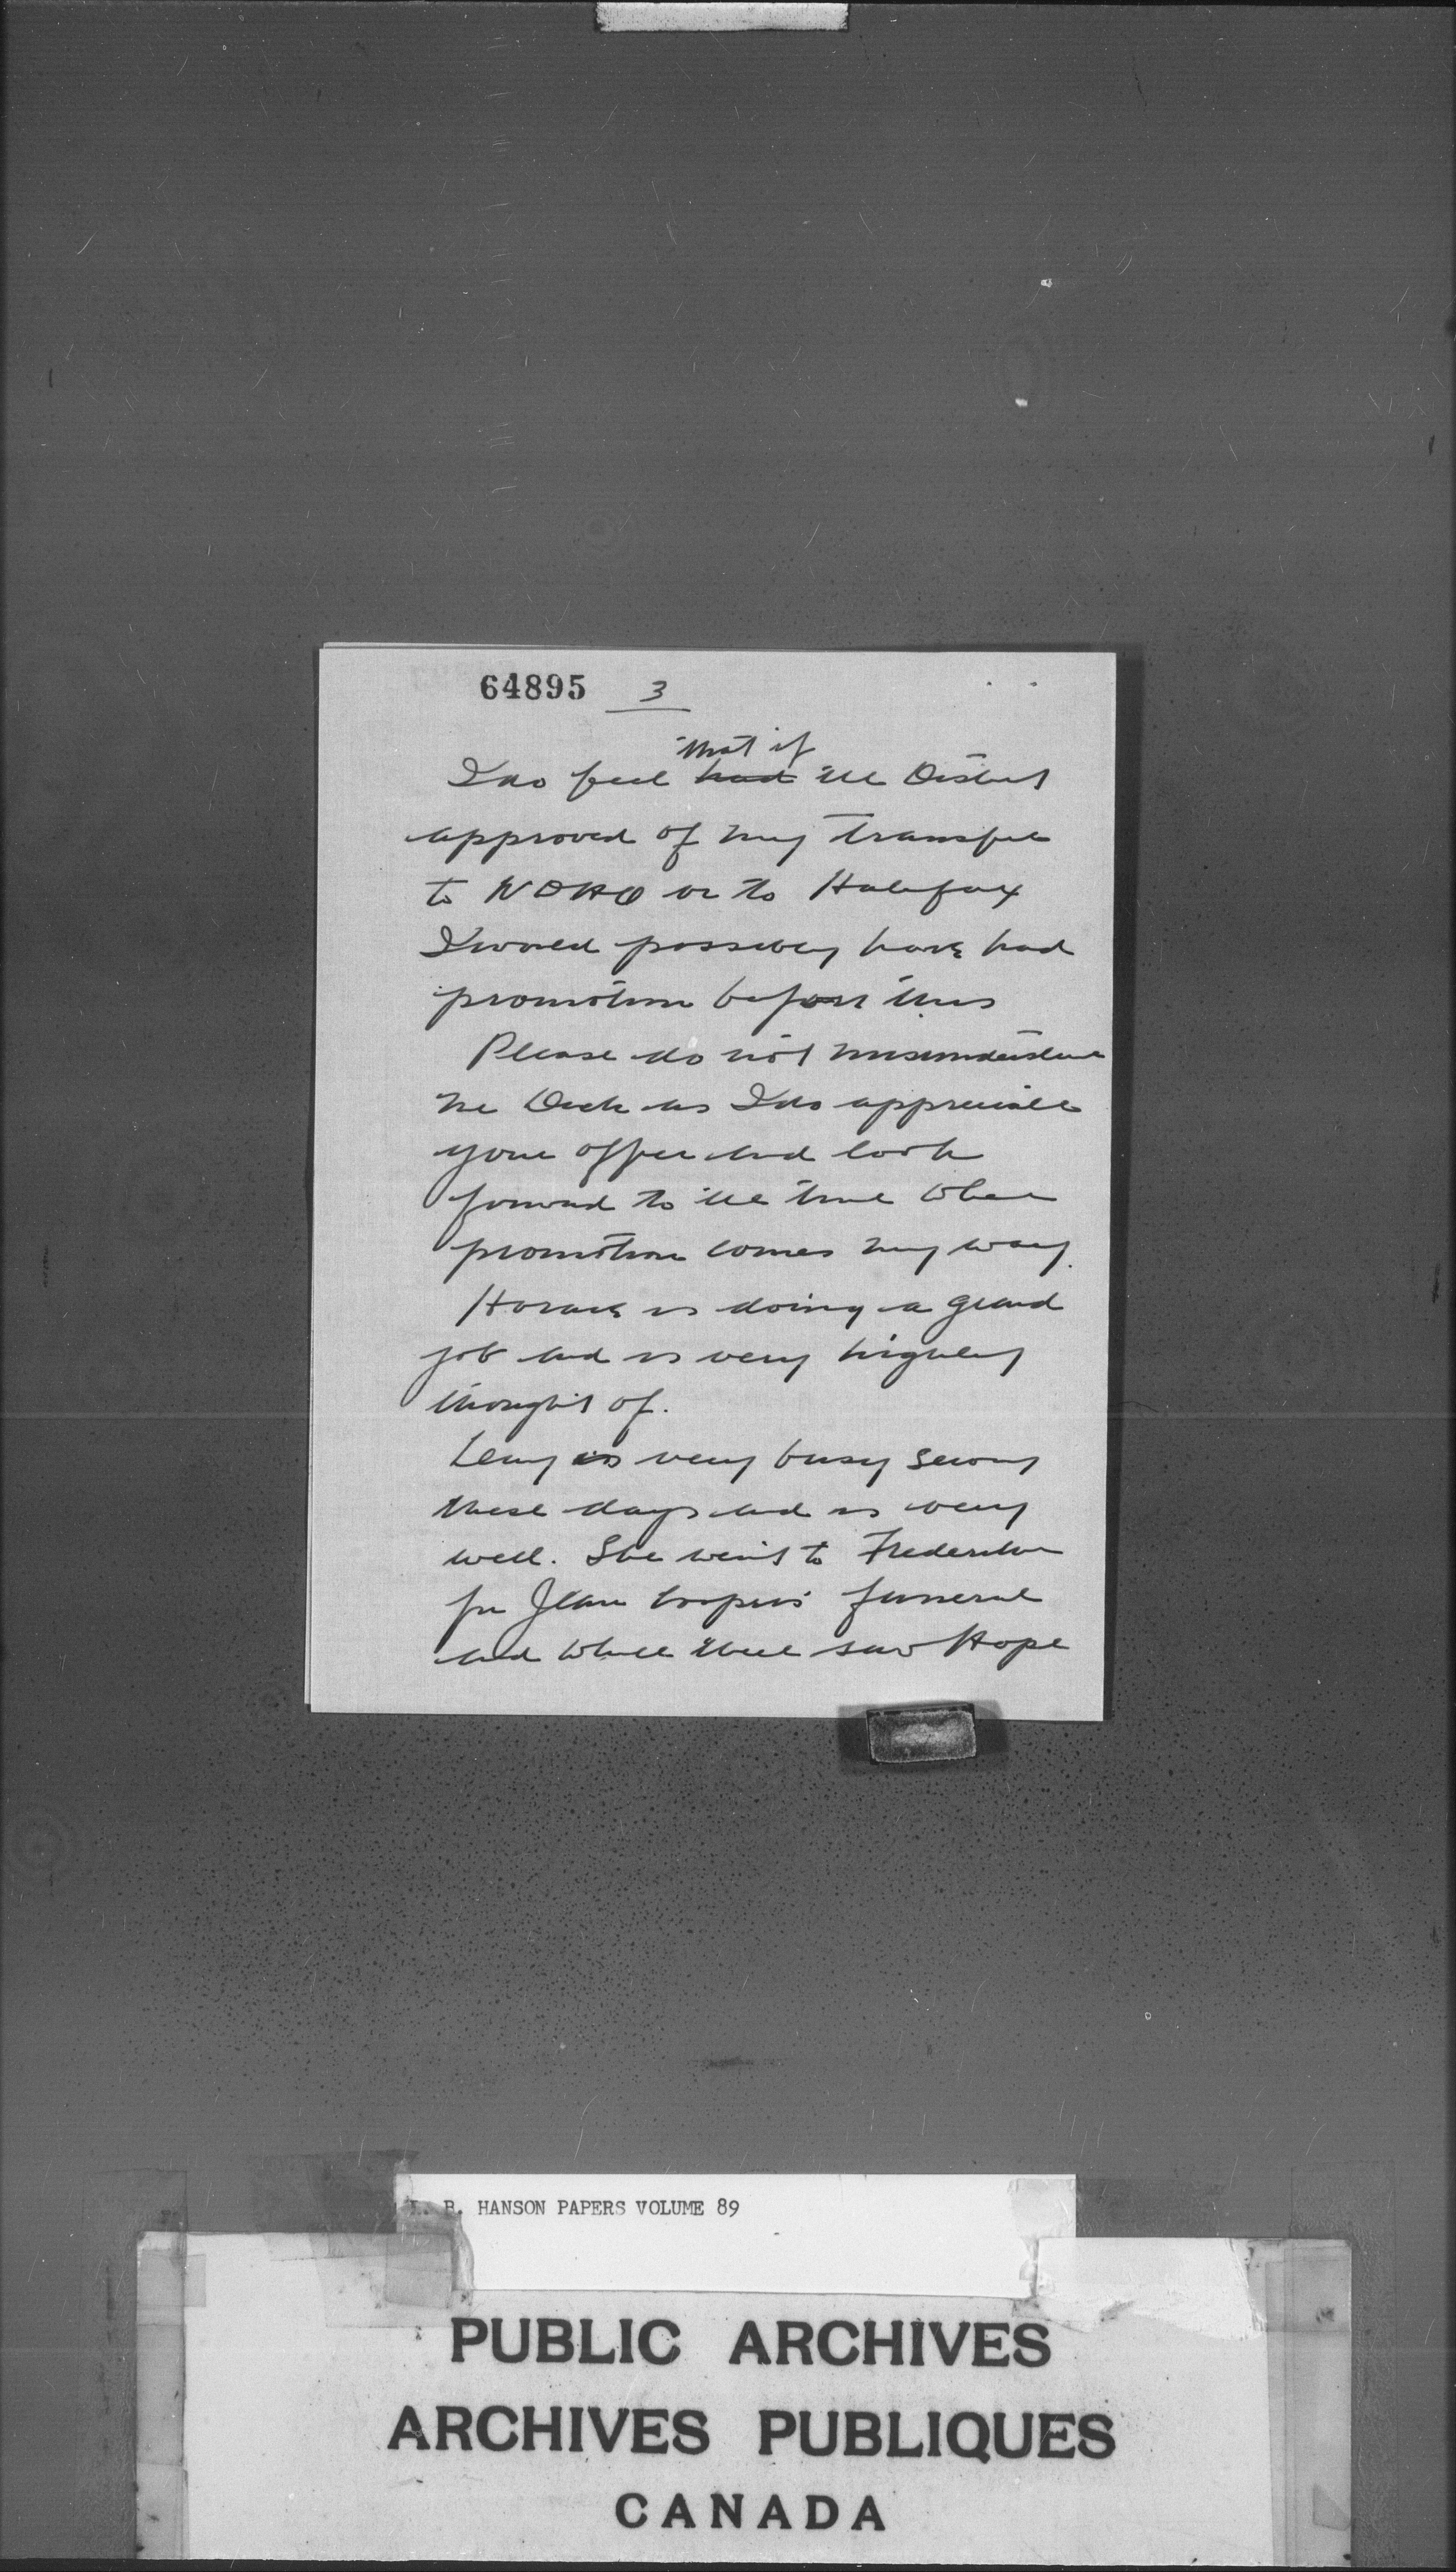 64895 3
that if
I do feel had the District
approved of my transfer
to NDHQ or to Halifax
I would possibly have had
promotion before this
Please do not misunderstand
me Dick as I do appreciate
your offer and look
forward to the time when
promotion comes my way.
Horace is doing a grand
job and is very highly
thought of.
is very busy sewing
these days and is very
well. She went to Fredericton
for Jean Cooper's funeral
and while there saw Hope
B. HANSON PAPERS VOLUME 89
PUBLIC ARCHIVES
ARCHIVES PUBLIQUES
CANADA